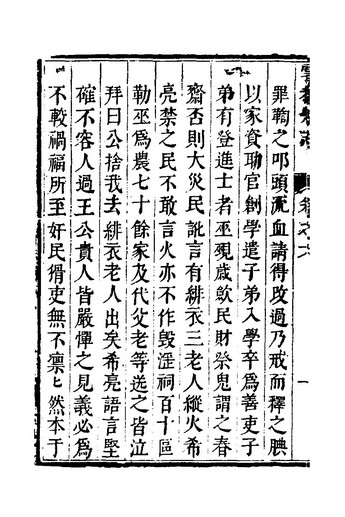 罪鞫之叩頭流血請得改過乃戒而釋之腆
以家資助官創學遣子弟入學卒為善吏子
弟有登進士者巫覡歲歛民財祭鬼謂之春
齋否則大災民訛言有緋衣三老人縱火希
亮禁之民不敢言火亦不作毀淫祠百十區
勒巫爲農七十餘家及代父老等送之皆泣
拜曰公捨我去緋衣老人出矣希亮語言堅
確不容人過王公貴人皆嚴憚之見義必爲
不較禍福所至奸民猾吏無不凜ヒ然本于